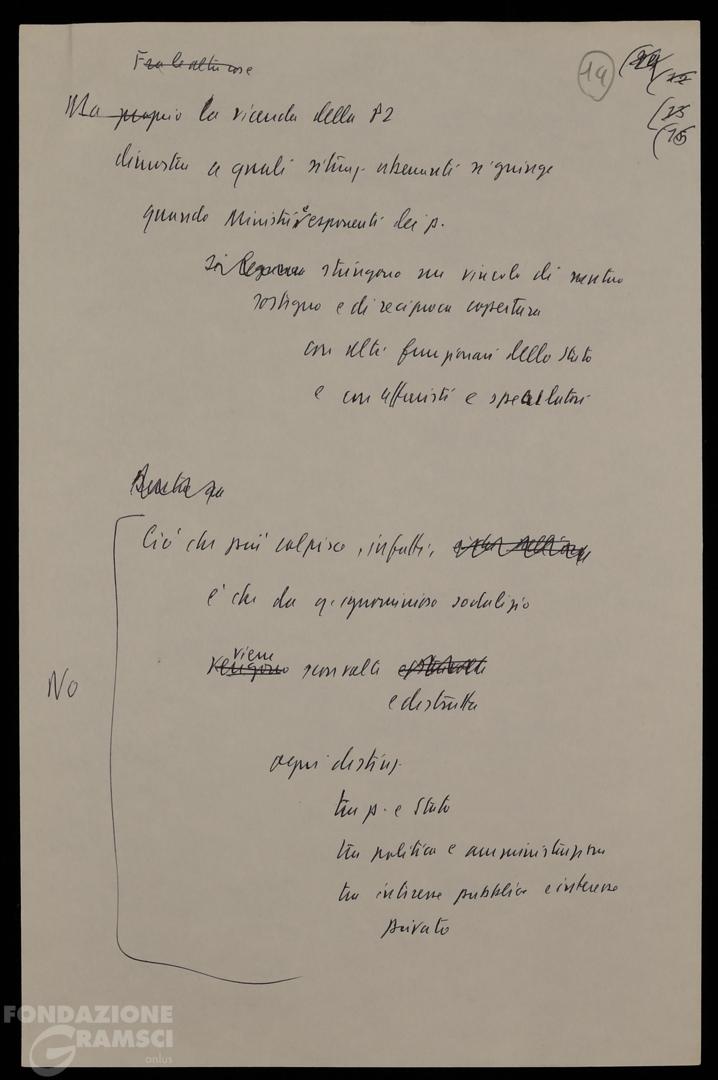 Fra le altre cose
14
Ma proprio la vicenda della P2
dimostra a quali situaz. aberranti si giunge
quando Ministri e esponenti dei p.
si legano stringono un vincolo di mutuo
sostegno e di reciproca copertura
con alti funzionari dello Stato
e con affaristi e speculatori
Ciò che più colpisce, infatti,
è che da q. ignominioso sodalizio
viene
vengono sconvolta
e distrutta
ogni distinz.
tra p. e Stato
No
tra politica e amministrazione
tra interesse pubblico e interesse
privato
FONDAZIONE
GRAMSCI
onlus